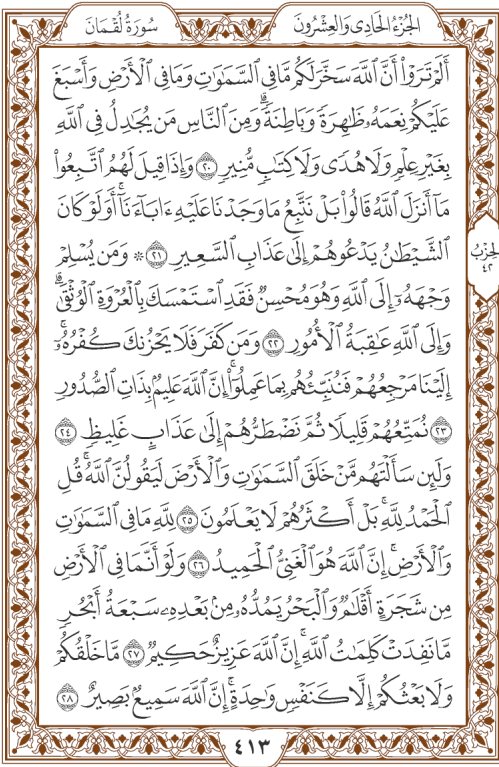 سُورَةُ لُقْمَانَ
الجُزْءُ الحَادِى وَالعِشْرُونَ
أَلَمْ تَرَوْا۟ أَنَّ ٱللَّهَ سَخَّرَ لَكُم مَّا فِى ٱلسَّمَـٰوَٰتِ وَمَا فِى ٱلْأَرْضِ وَأَسْبَغَ
عَلَيْكُمْ نِعَمَهُۥ ظَـٰهِرَةً وَبَاطِنَةً ۗ وَمِنَ ٱلنَّاسِ مَن يُجَـٰدِلُ فِى ٱللَّهِ
بِغَيْرِ عِلْمٍ وَلَا هُدًى وَلَا كِتَـٰبٍ مُّنِيرٍ ٢٠ وَإِذَا قِيلَ لَهُمُ ٱتَّبِعُوا۟
مَآ أَنزَلَ ٱللَّهُ قَالُوا۟ بَلْ نَتَّبِعُ مَا وَجَدْنَا عَلَيْهِ ءَابَآءَنَآ ۚ أَوَلَوْ كَانَ
ٱلشَّيْطَـٰنُ يَدْعُوهُمْ إِلَىٰ عَذَابِ ٱلسَّعِيرِ ٢١ ۞ وَمَن يُسْلِمْ
وَجْهَهُۥٓ إِلَى ٱللَّهِ وَهُوَ مُحْسِنٌ فَقَدِ ٱسْتَمْسَكَ بِٱلْعُرْوَةِ ٱلْوُثْقَىٰ ۗ
وَإِلَى ٱللَّهِ عَـٰقِبَةُ ٱلْأُمُورِ ٢٢ وَمَن كَفَرَ فَلَا يَحْزُنكَ كُفْرُهُۥٓ ۚ
إِلَيْنَا مَرْجِعُهُمْ فَنُنَبِّئُهُم بِمَا عَمِلُوٓا۟ ۚ إِنَّ ٱللَّهَ عَلِيمٌۢ بِذَاتِ ٱلصُّدُورِ
٢٣ نُمَتِّعُهُمْ قَلِيلًا ثُمَّ نَضْطَرُّهُمْ إِلَىٰ عَذَابٍ غَلِيظٍ ٢٤
وَلَئِن سَأَلْتَهُم مَّنْ خَلَقَ ٱلسَّمَـٰوَٰتِ وَٱلْأَرْضَ لَيَقُولُنَّ ٱللَّهُ ۚ قُلِ
ٱلْحَمْدُ لِلَّهِ ۚ بَلْ أَكْثَرُهُمْ لَا يَعْلَمُونَ ٢٥ لِلَّهِ مَا فِى ٱلسَّمَـٰوَٰتِ
وَٱلْأَرْضِ ۚ إِنَّ ٱللَّهَ هُوَ ٱلْغَنِىُّ ٱلْحَمِيدُ ٢٦ وَلَوْ أَنَّمَا فِى ٱلْأَرْضِ
مِن شَجَرَةٍ أَقْلَـٰمٌ وَٱلْبَحْرُ يَمُدُّهُۥ مِنۢ بَعْدِهِۦ سَبْعَةُ أَبْحُرٍ
مَّا نَفِدَتْ كَلِمَـٰتُ ٱللَّهِ ۗ إِنَّ ٱللَّهَ عَزِيزٌ حَكِيمٌ ٢٧ مَّا خَلْقُكُمْ
وَلَا بَعْثُكُمْ إِلَّا كَنَفْسٍ وَٰحِدَةٍ ۗ إِنَّ ٱللَّهَ سَمِيعٌۢ بَصِيرٌ ٢٨
الحِزْبُ
٤٢
٤١٣